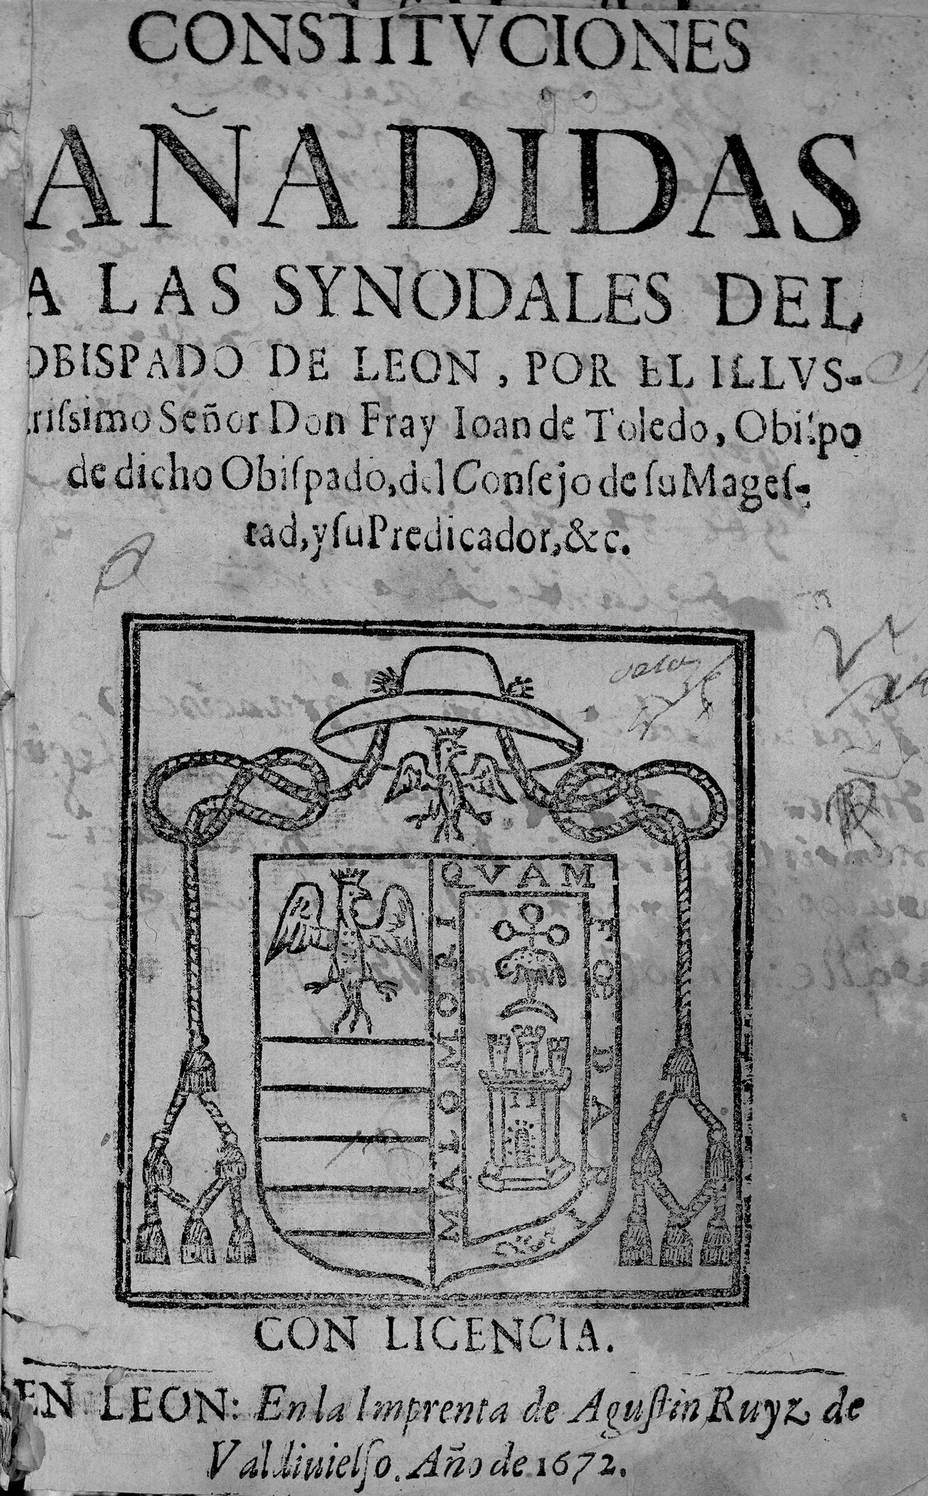 CONSTITVCIONES
AÑADIDAS
A LAS SYNODALES DEL
OBISPADO DE LEON, POR EL ILLVS-
triſsimo Señor Don Fray Ioan de Toledo, Obiſpo
de dicho Obiſpado, del Conſejo de ſu Mageſ-
tad, y ſu Predicador, &c.
MALO MORI
QVAM
FOEDARI
CON LICENCIA.
EN LEON: En la Imprenta de Aguſtin Ruyz de
Valdiuielſo. Año de 1672.